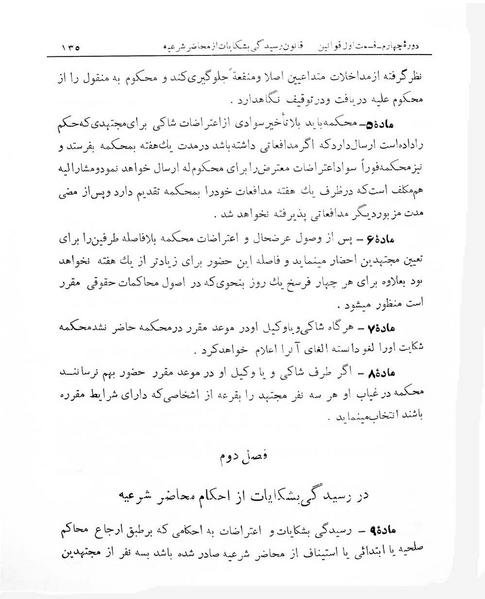 دورهٔ چهارم - قسمت اول قوانین قانون رسیدگی بشکایات از محاضر شرعیه ۱۳۵
نظر گرفته از مداخلات متداعیین اصلا و منفعةً جلوگیری کند و محکوم به منقول را از
محکوم علیه دریافت و در توقیف نگاهدارد .
مادهٔ ۵ - محکمه باید بلا تأخیر سوادی از اعتراضات شاکی برای مجتهدی که حکم
را داده است ارسال دارد که اگر مدافعاتی داشته باشد در مدت یك هفته بمحکمه بفرستد و
نیز محکمه فوراً سواد اعتراضات معترض را برای محکوم له ارسال خواهد نمود و مشارالیه
هم مکلف است که در ظرف یك هفته مدافعات خود را بمحکمه تقدیم دارد و پس از مضی
مدت مزبور دیگر مدافعاتی پذیرفته نخواهد شد .
مادهٔ ۶ - پس از وصول عرضحال و اعتراضات محکمه بلافاصله طرفین را برای
تعیین مجتهدین احضار مینماید و فاصله این حضور برای زیادتر از یك هفته نخواهد
بود بعلاوه برای هر چهار فرسخ یك روز بنحوی که در اصول محاکمات حقوقی مقرر
است منظور میشود .
مادهٔ ۷ - هر گاه شاکی و یا وکیل او در موعد مقرر در محکمه حاضر نشد محکمه
شکایت او را لغو دانسته الغای آنرا اعلام خواهد کرد .
مادهٔ ۸ - اگر طرف شاکی و یا وکیل او در موعد مقرر حضور بهم نرسانند
محکمه در غیاب او هر سه نفر مجتهد را بقرعه از اشخاصی که دارای شرایط مقرره
باشند انتخاب مینماید .
فصل دوم
در رسیدگی بشکایات از احکام محاضر شرعیه
مادهٔ ۹ - رسیدگی بشکایات و اعتراضات به احکامی که بر طبق ارجاع محاکم
صلحیه یا ابتدائی یا استیناف از محاضر شرعیه صادر شده باشد بسه نفر از مجتهدین